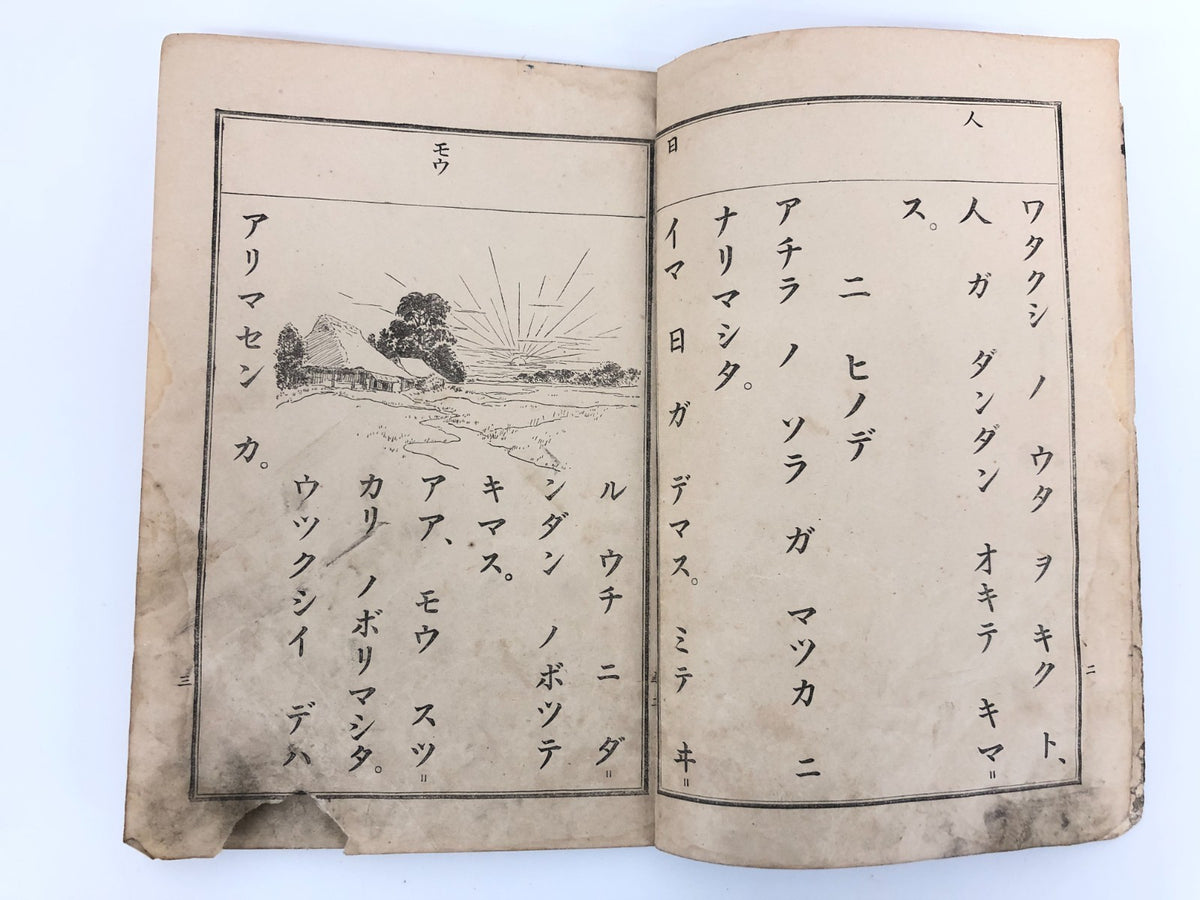 人
ワタクシ ノ ウタ ヲ キクト、
人 ガ ダンダン オキテ キマ゠
ス。
二 ヒノデ
アチラ ノ ソラ ガ マツカ ニ
ナリマシタ。
日
イマ 日 ガ デマス。 ミテ ヰ゠
二
モウ
ル ウチ ニ ダ゠
ンダン ノボツテ
キマス。
アア、 モウ スツ゠
カリ ノボリマシタ。
ウツクシイ デハ
アリマセン カ。
三